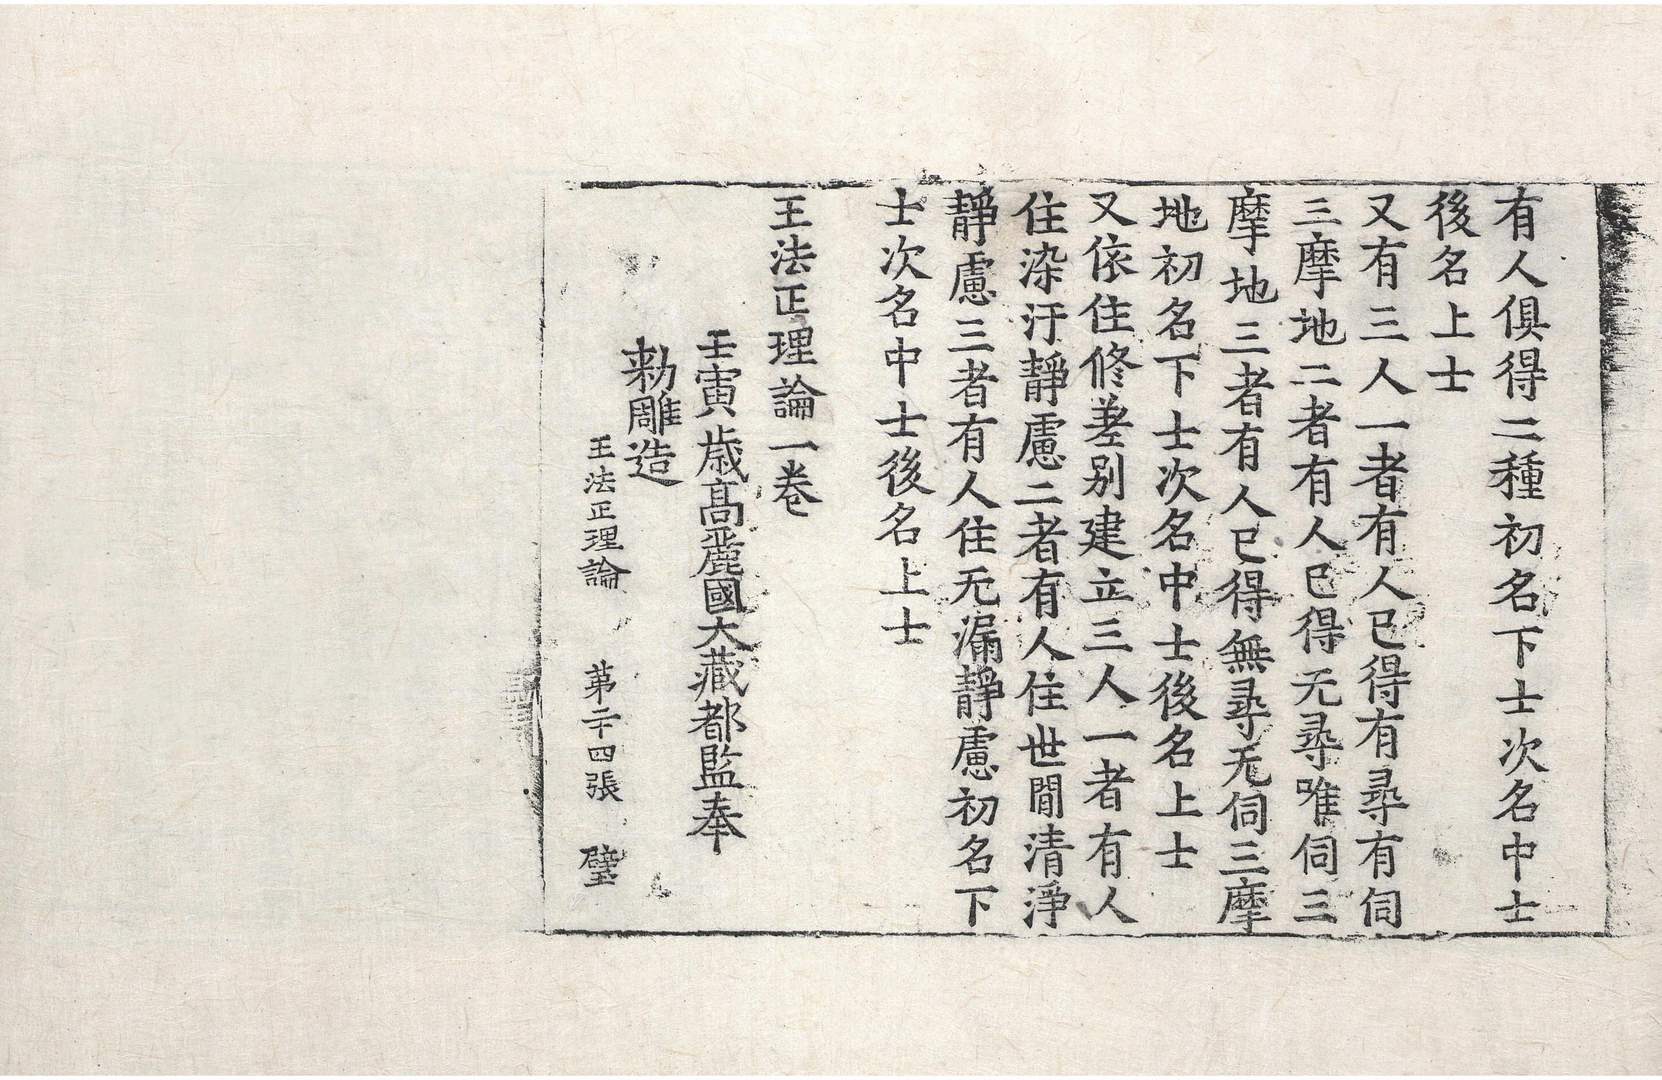 有人俱得二種初名下士次名中士
後名上士
又有三人一者有人已得有尋有伺
三摩地二者有人已得无尋唯伺三
摩地三者有人已得無尋无伺三摩
地初名下士次名中士後名上士
又依住修差别建立三人一者有人
住染汙靜慮二者有人住世間清淨
靜慮三者有人住无漏靜慮初名下
士次名中士後名上士
王法正理論一卷
壬寅歲高麗國大藏都監奉
勑雕造
王法正理論 第二十四張 璧